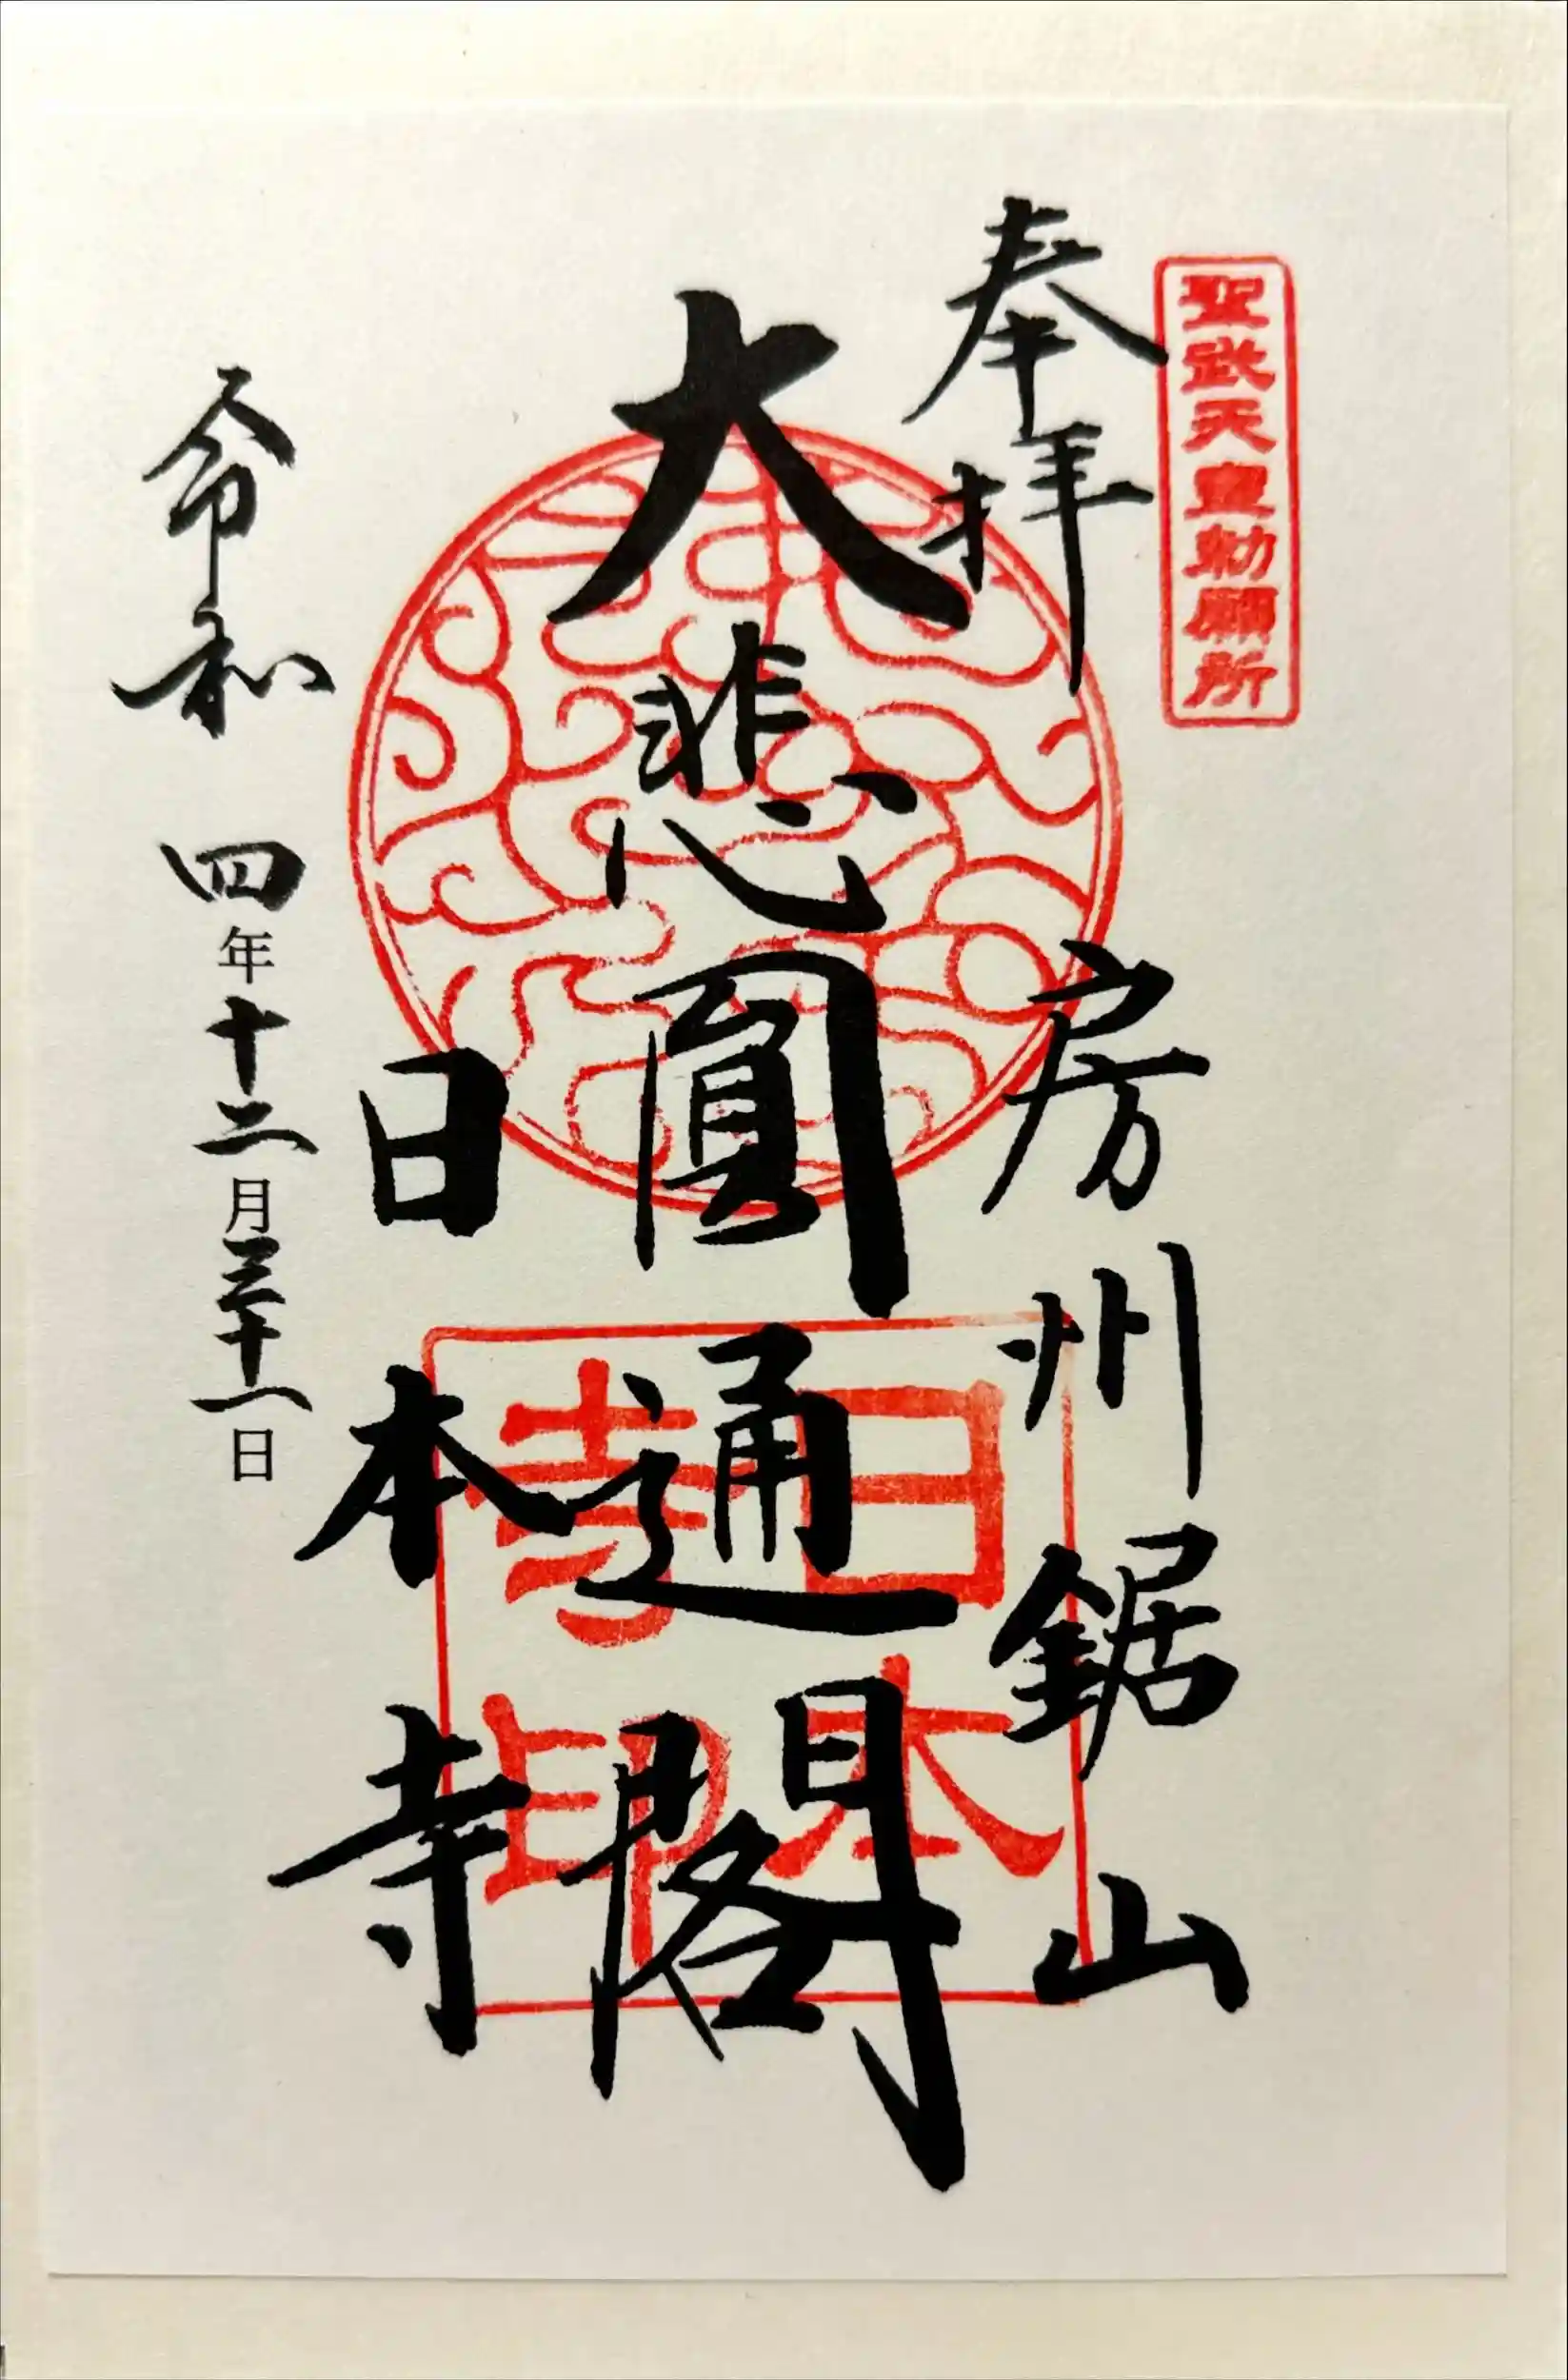 聖武天皇勅願所
奉拝
房州鋸山
大悲圓通閣
日本寺
日本寺印
令和四年十二月三十一日